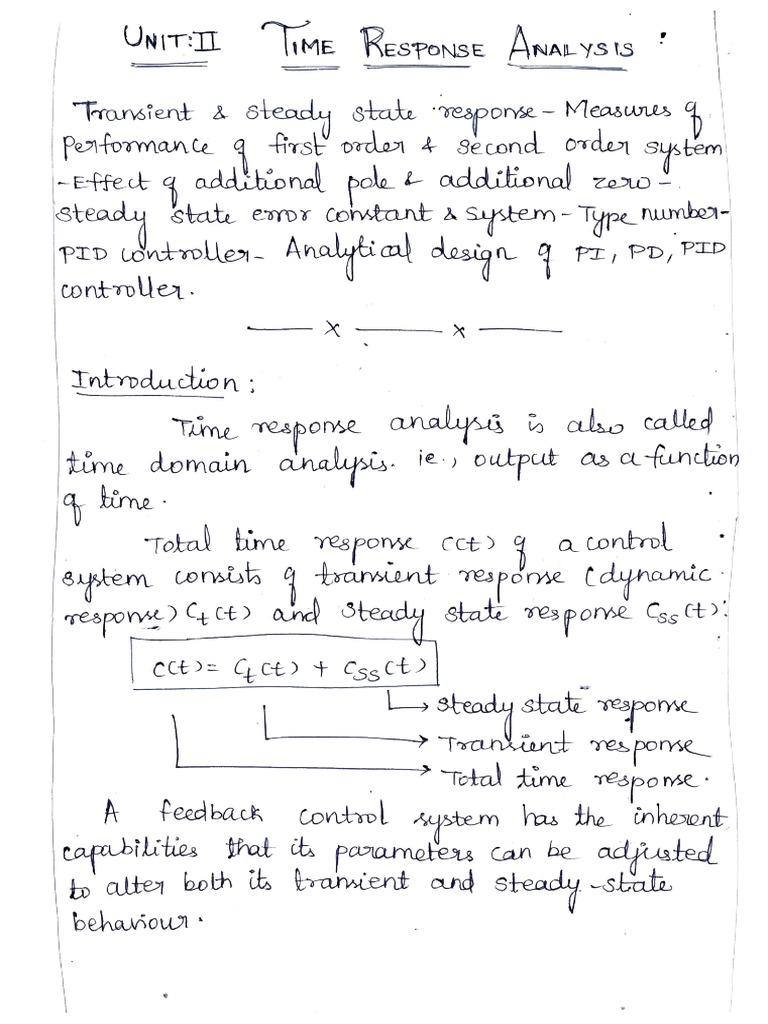 UNIT:II TIME RESPONSE ANALYSIS :
Transient & steady state response - Measures of
performance of first order & second order system
- Effect of additional pole & additional zero -
steady state error constant & system - Type number -
PID controller - Analytical design of PI, PD, PID
controller.
x x
Introduction :
Time response analysis is also called
time domain analysis. ie., output as a function
of time.
Total time response c(t) of a control
system consists of transient response (dynamic
response) Ct(t) and steady state response Css(t):
c(t) = Ct(t) + Css(t)
Steady state response
Transient response
Total time response.
A feedback control system has the inherent
capabilities that its parameters can be adjusted
to alter both its transient and steady-state
behaviour.